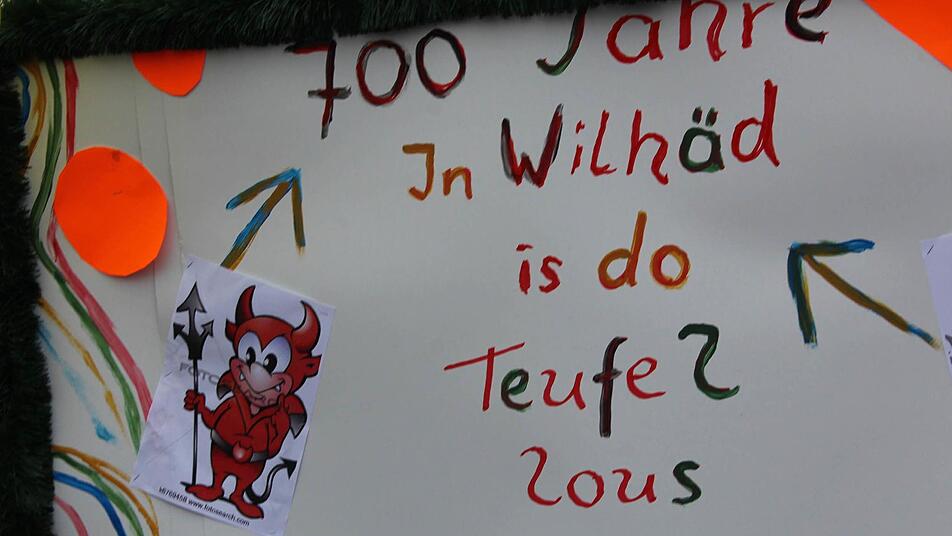 700 Jahre
In Wilhäd
is do
Teufel
lous
FOTO
k6769458 www.fotosearch.com